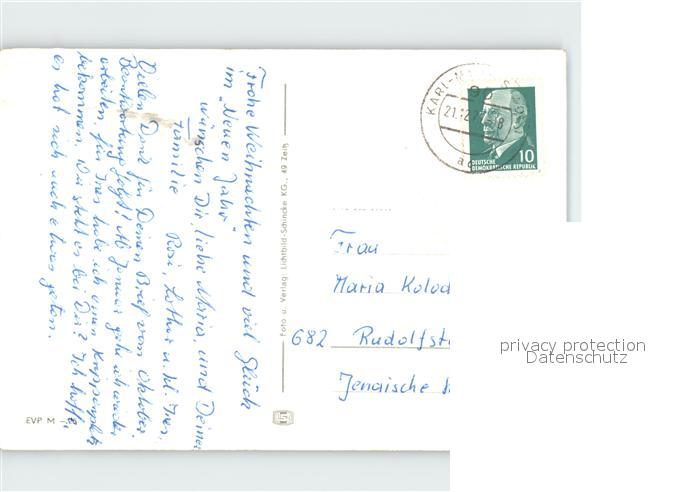 Frohe Weihnachten und viel Glück
im „Neuen Jahr"
wünschen Dir, liebe Maria, und Deiner
Familie
Rosi, Lothar u. kl. Ines.
Vielen Dank für Deinen Brief vom Oktober.
Beantwortung folgt! Ab Januar gehe ich wieder
arbeiten, für Ines habe ich einen Krippenplatz
bekommen. Wie steht es bei Dir? Ich hoffe,
es hat sich auch etwas getan.
Foto u. Verlag: Lichtbild-Schincke KG., 49 Zeitz
KARL-MA
21.12.
10
DEUTSCHE
DEMOKRATISCHE REPUBLIK
Frau
Maria Kolod
682 Rudolfst
Jenaische
EVP M
privacy protection
Datenschutz